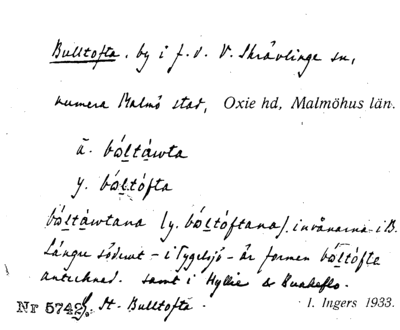 Bulltofta. by i f. d. V. Skrävlinge sn,
numera Malmö stad, Oxie hd, Malmöhus län.
ä. bóltáwta
y. bóltófta
bóltáwtana (y. bóltóftana). invånarna i B.
Längre söderut - i Tygelsjö - är formen bóltófte
antecknad. samt i Hyllie & Bunkeflo.
Nr 5742. St. Bulltofta. I. Ingers 1933.